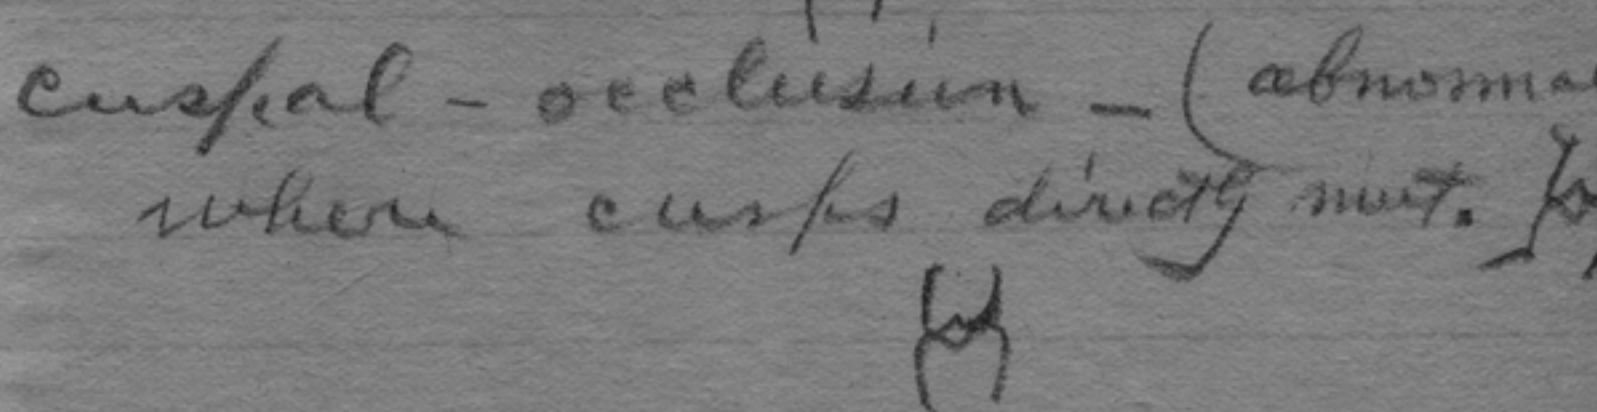 cuspal - occlusion - (abnormal
where cusps directly meet.